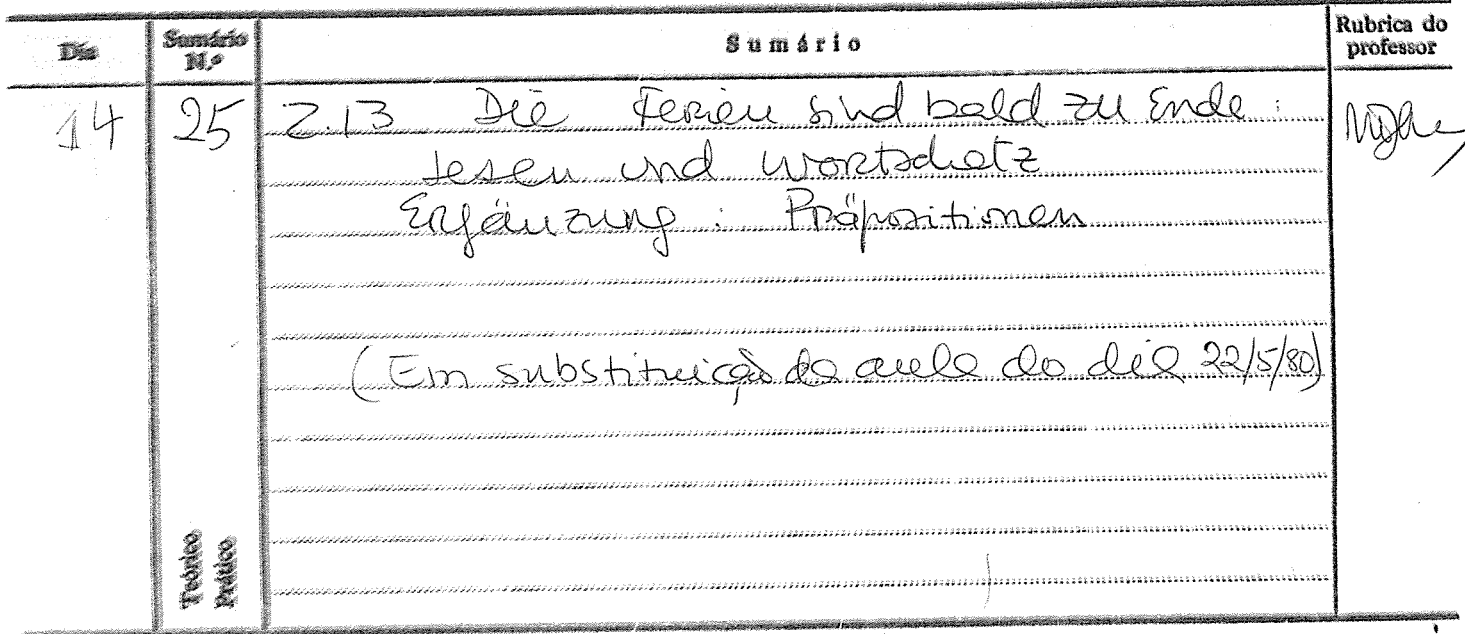 Dia Sumário N.º Sumário Rubrica do professor
14 25 2.13 Die Ferien sind bald zu Ende :
Lesen und Wortschatz
Ergänzung : Präpositionen
(Em substituição da aula do dia 22/5/80)
Teórico
Prático